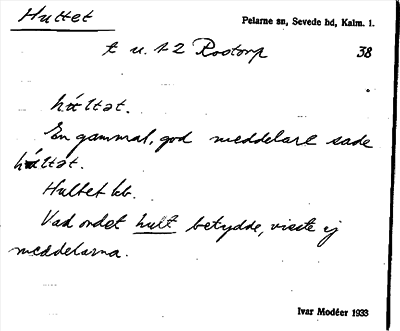 Hultet
Pelarne sn, Sevede hd, Kalm. l.
t u. 1-2 Rostorp 38
hʉltət.
En gammal, god meddelare sade
hʉ́ltət.
Hultet kb.
Vad ordet hult betydde, visste ej
meddelarna.
Ivar Modéer 1933